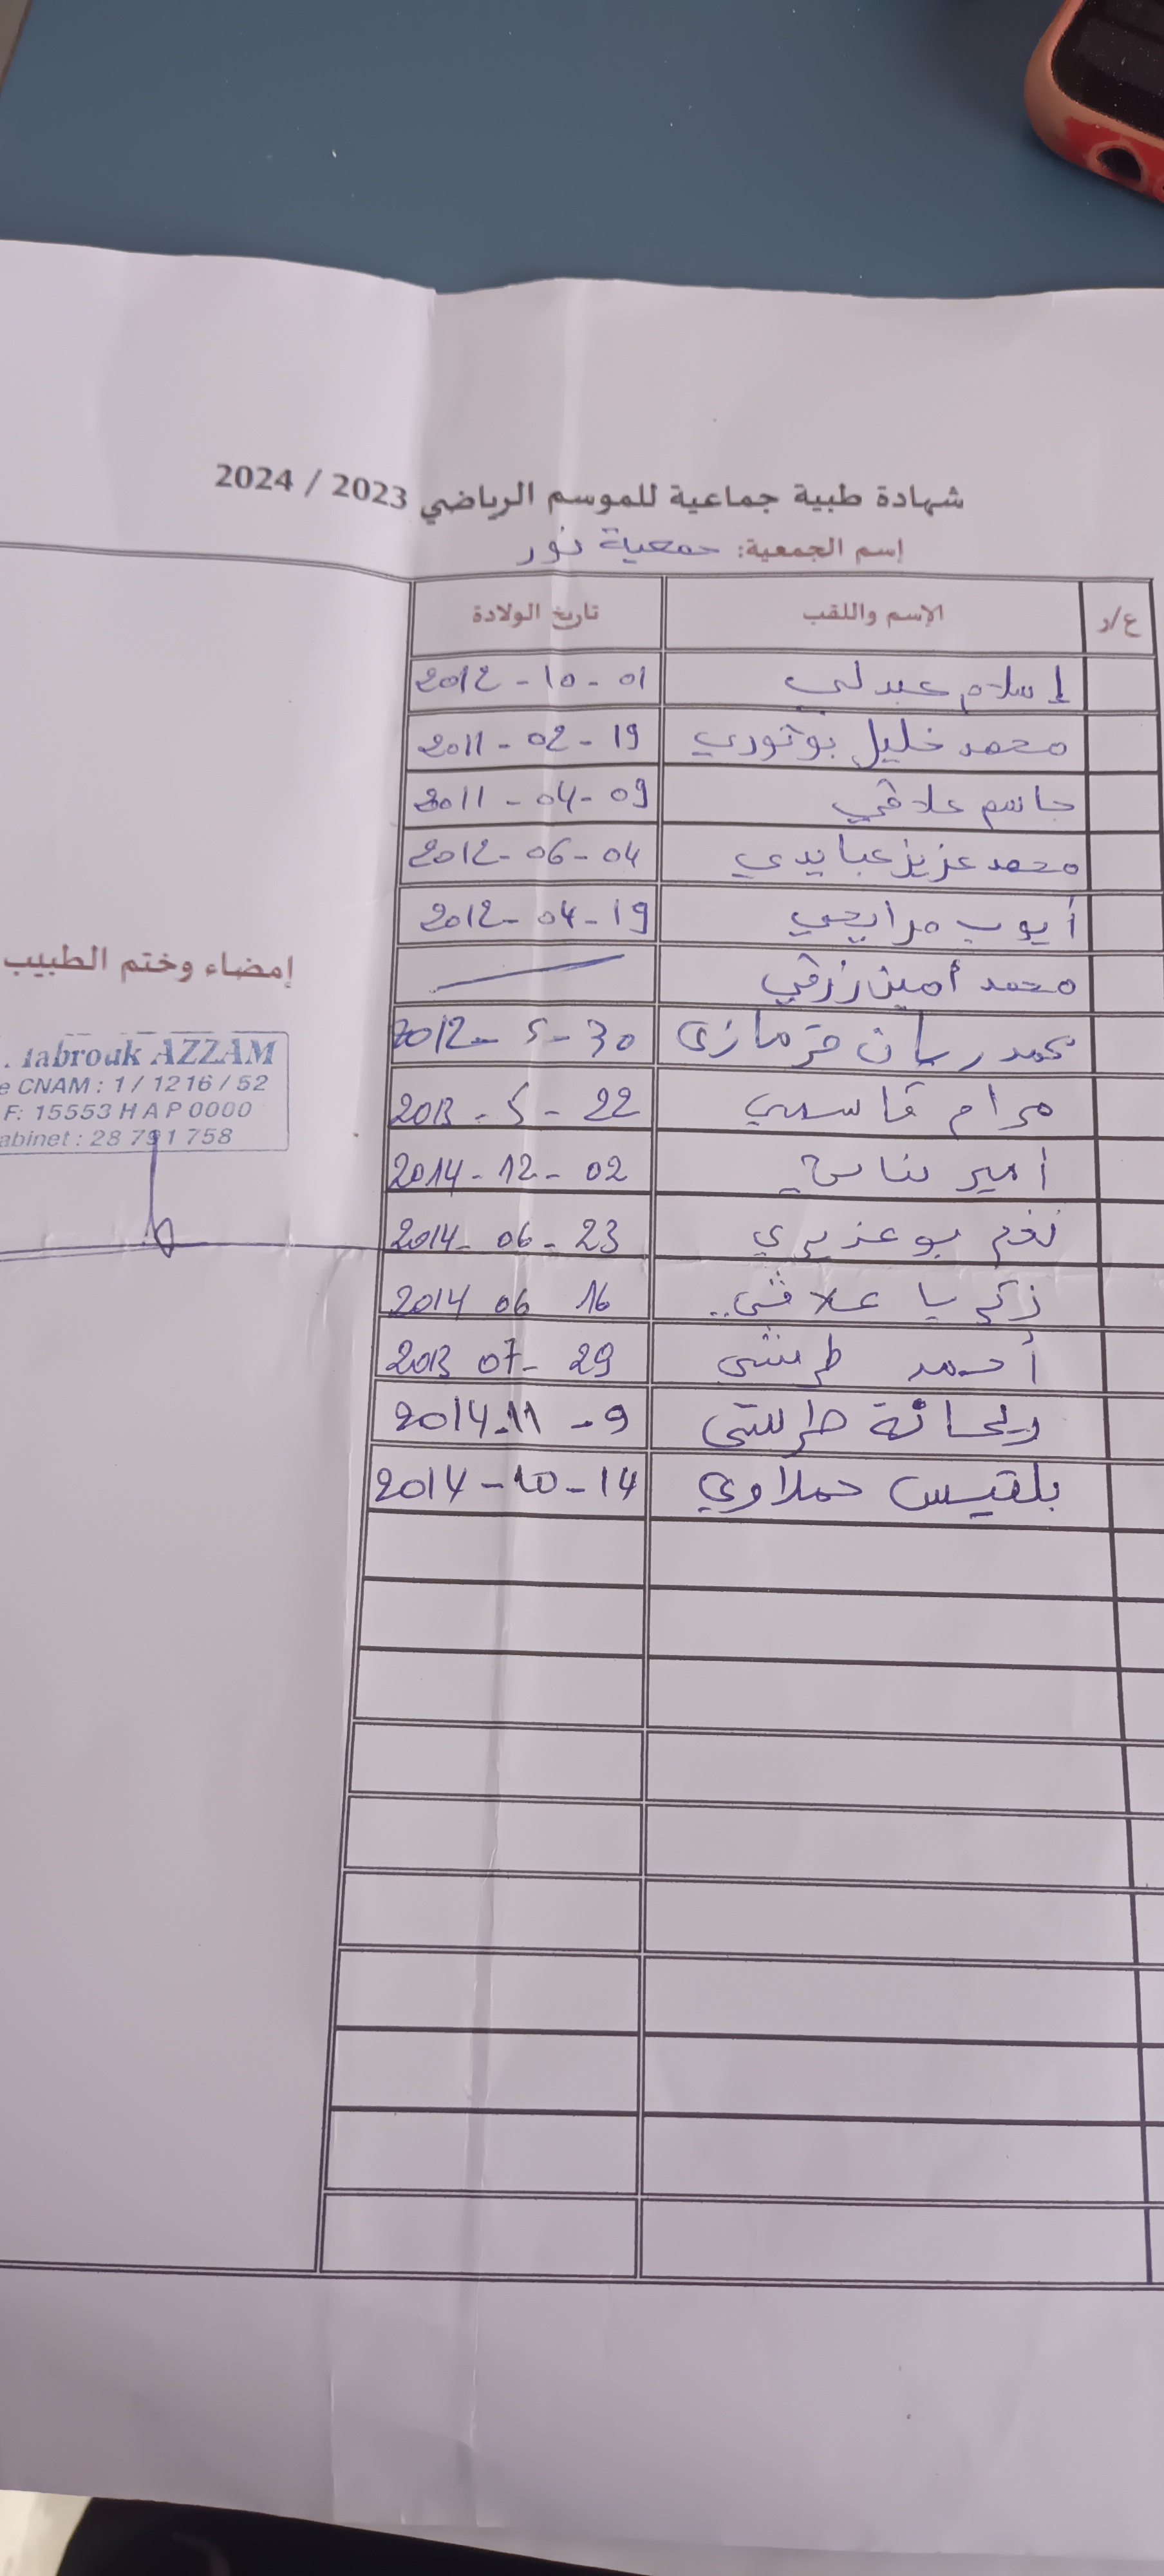 شهادة طبية جماعية للموسم الرياضي 2023 / 2024
إسم الجمعية: جمعية نور
ع/ر الإسم واللقب تاريخ الولادة
إسلام عبدلي 2012 - 10 - 01
محمد خليل بوثوري 2011 - 02 - 19
جاسم علاقي 2011 - 04 - 09
محمد عزيز عبايدي 2012 - 06 - 04
أيوب مرايحي 2012 - 04 - 19
محمد أمين زرقي
محمد ريان قرمازي 2012 - 5 - 30
مرام قاسمي 2013 - 5 - 22
أمير 2014 - 12 - 02
نغم بوعزيزي 2014 - 06 - 23
زكريا علاقي 2014 06 16
أحمد طرشي 2013 07 - 29
ريحانة طرشي 2014.11 - 9
بلقيس حملاوي 2014 - 10 - 14
إمضاء وختم الطبيب
AZZAM
CNAM : 1 / 1216 / 52
F: 15553 H A P 0000
abinet : 28 791 758